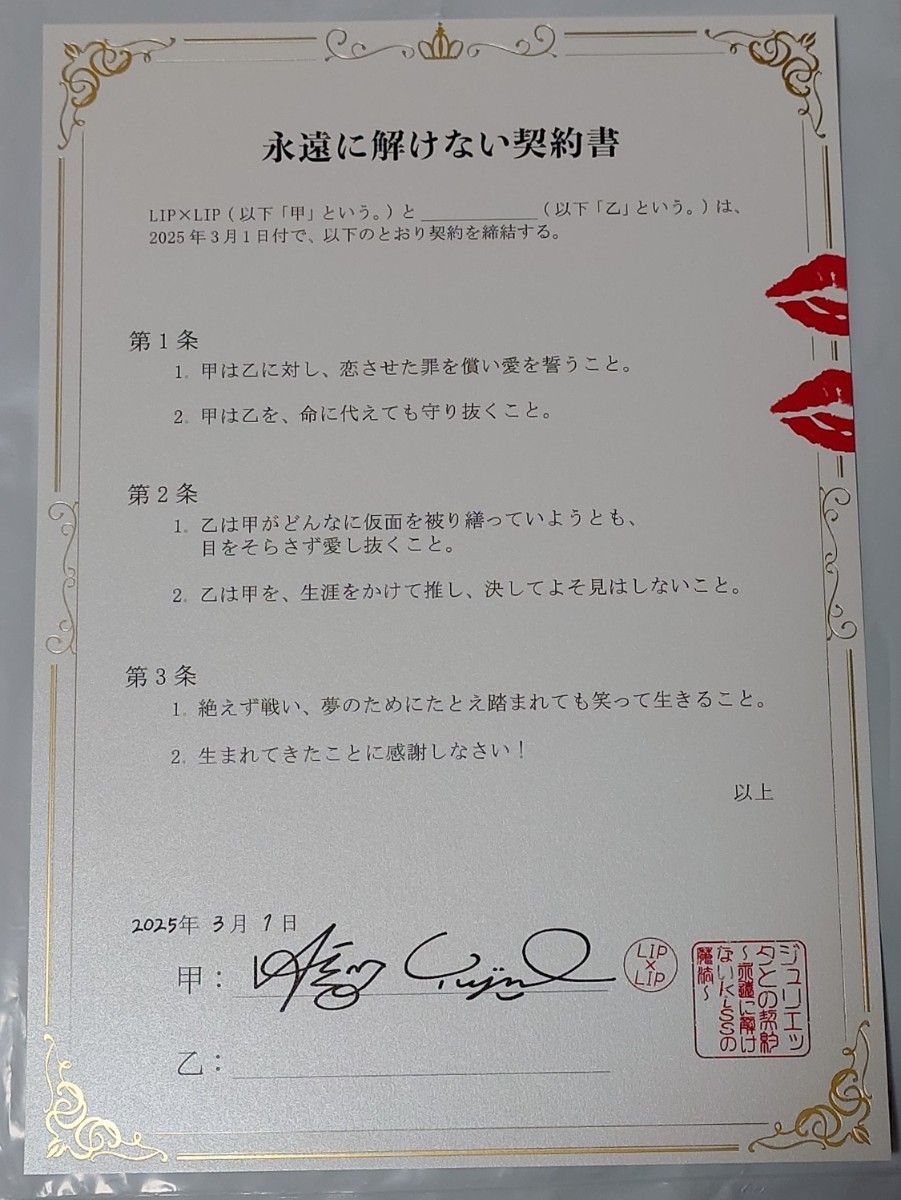 永遠に解けない契約書
LIP×LIP（以下「甲」という。）と____________（以下「乙」という。）は、
2025年3月1日付で、以下のとおり契約を締結する。
第1条
1. 甲は乙に対し、恋させた罪を償い愛を誓うこと。
2. 甲は乙を、命に代えても守り抜くこと。
第2条
1. 乙は甲がどんなに仮面を被り繕っていようとも、
目をそらさず愛し抜くこと。
2. 乙は甲を、生涯をかけて推し、決してよそ見はしないこと。
第3条
1. 絶えず戦い、夢のためにたとえ踏まれても笑って生きること。
2. 生まれてきたことに感謝しなさい！
以上
2025年 3月 1日
甲：
LIP
×
LIP
ジュリエッ
タとの契約
～永遠に解け
ないKiSSの
魔法～
乙：